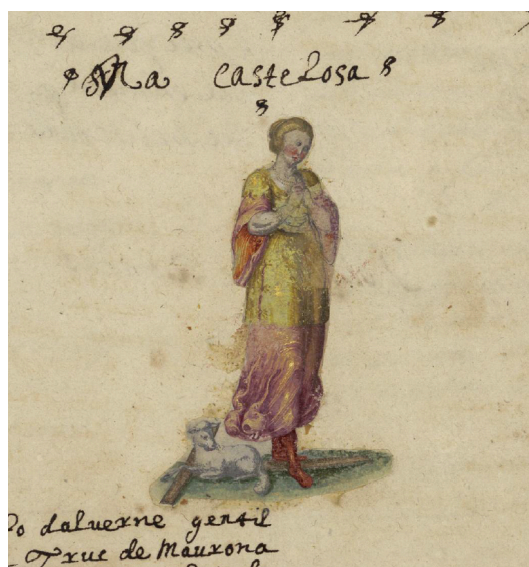 Na Castelosa
dalverne gentil
Truc de Maurona